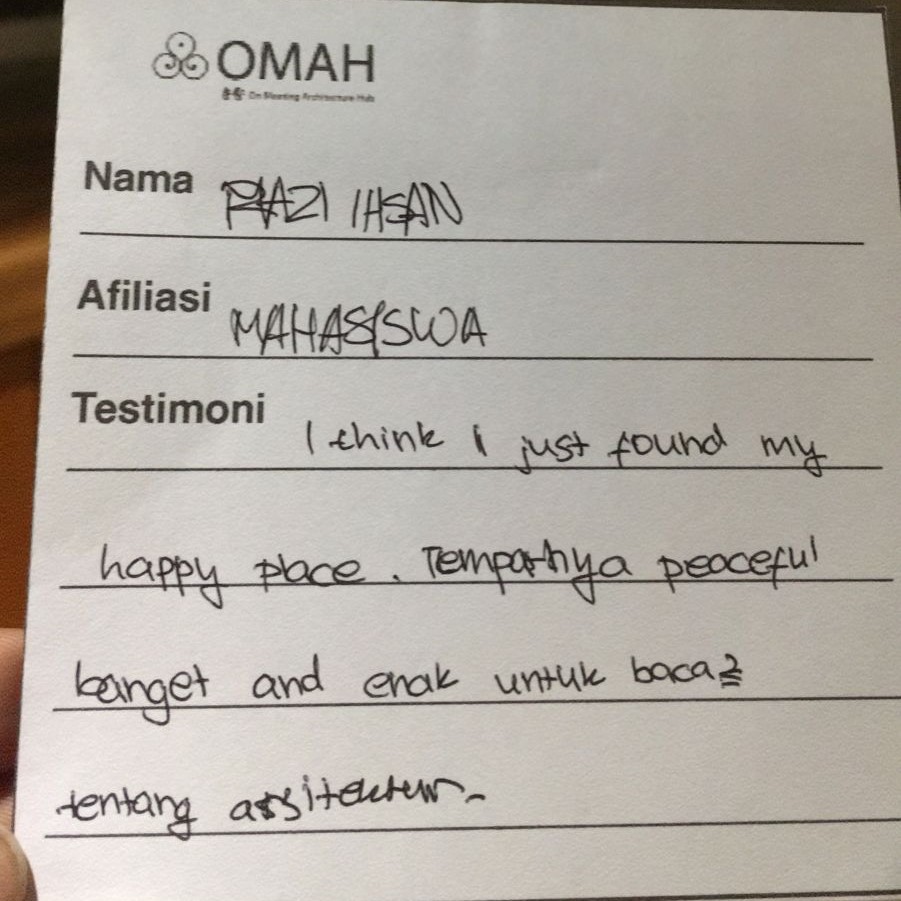 OMAH
Nama RAZI IHSAN
Afiliasi MAHASISWA
Testimoni I think I just found my
happy place. Tempatnya peaceful
banget and enak untuk baca2
tentang arsitektur.